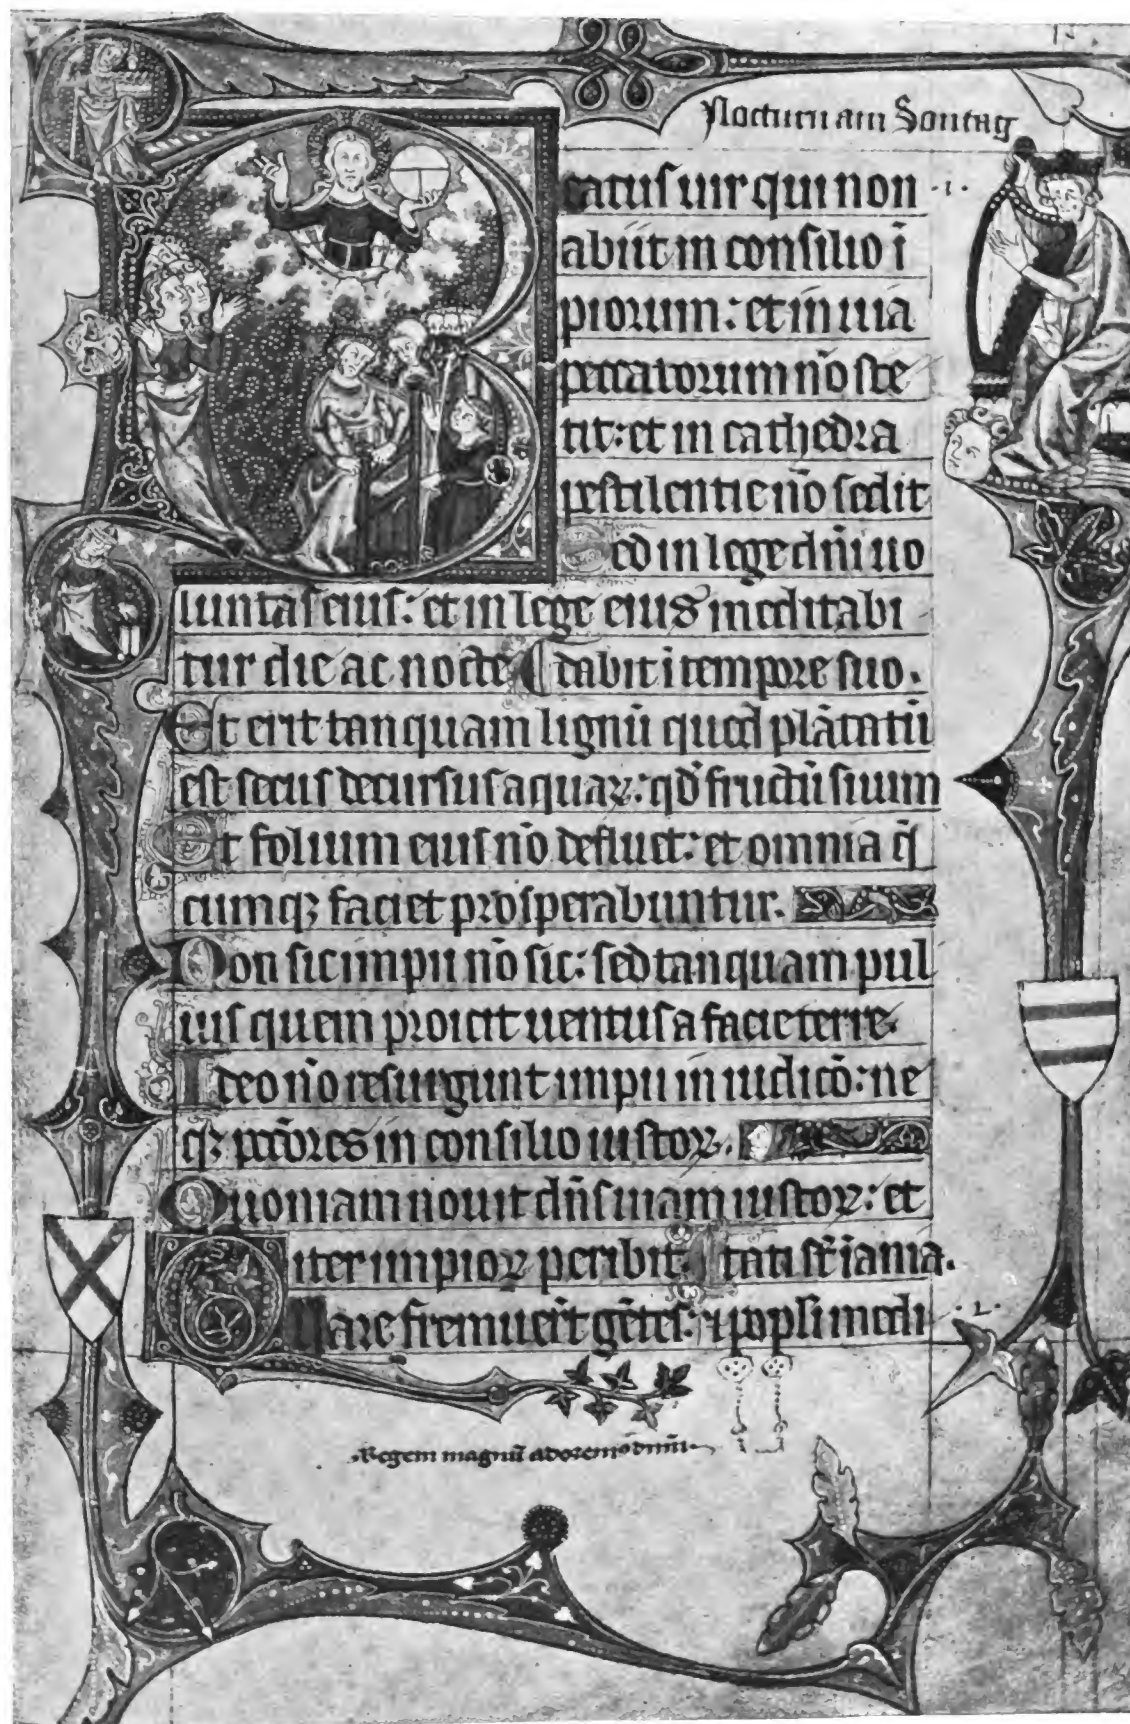 Nocturn am Sontag
Beatus uir qui non .1.
abiit in consilio ī
piorum: et in uia
peccatorum nō ste
tit: et in cathedra
pestilentie nō sedit
Sed in lege dn̄i uo
luntas eius: et in lege eius meditabi
tur die ac nocte dabit ī tempore suo.
Et erit tanquam lignū quod plātatū
est secus decursus aquaꝝ: qd̄ fructū suum
Et folium eius nō defluet: et omnia q̄
cumqꝫ faciet prosperabuntur.
Non sic impii nō sic: sed tanquam pul
uis quem proicit uentus a facie terre.
Ideo nō resurgunt impii in iudicō: ne
qꝫ pctōres in consilio iustoꝝ.
Quoniam nouit dn̄s uiam iustoꝝ: et
iter impioꝝ peribit.
Quare fremuer̄t gētes: ⁊ popli medi .2.
Regem magnū adoremꝰ dominū